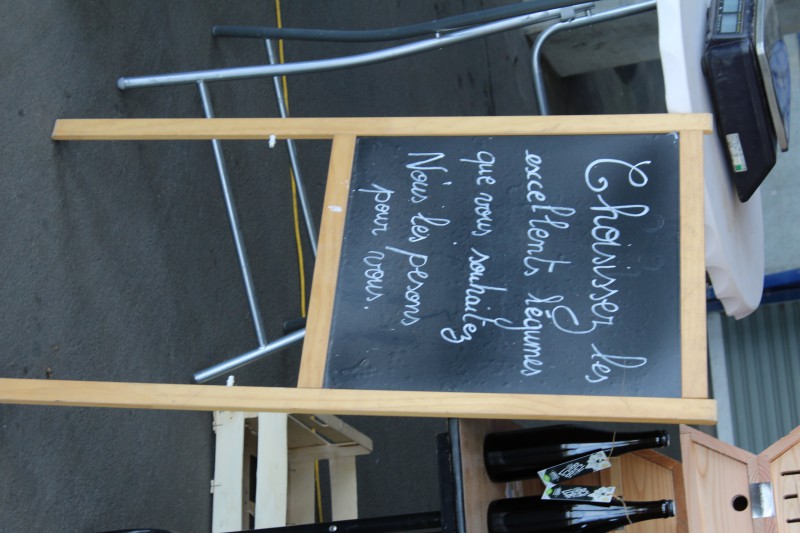 Choisissez les
excellents légumes
que vous souhaitez
Nous les pesons
pour vous.